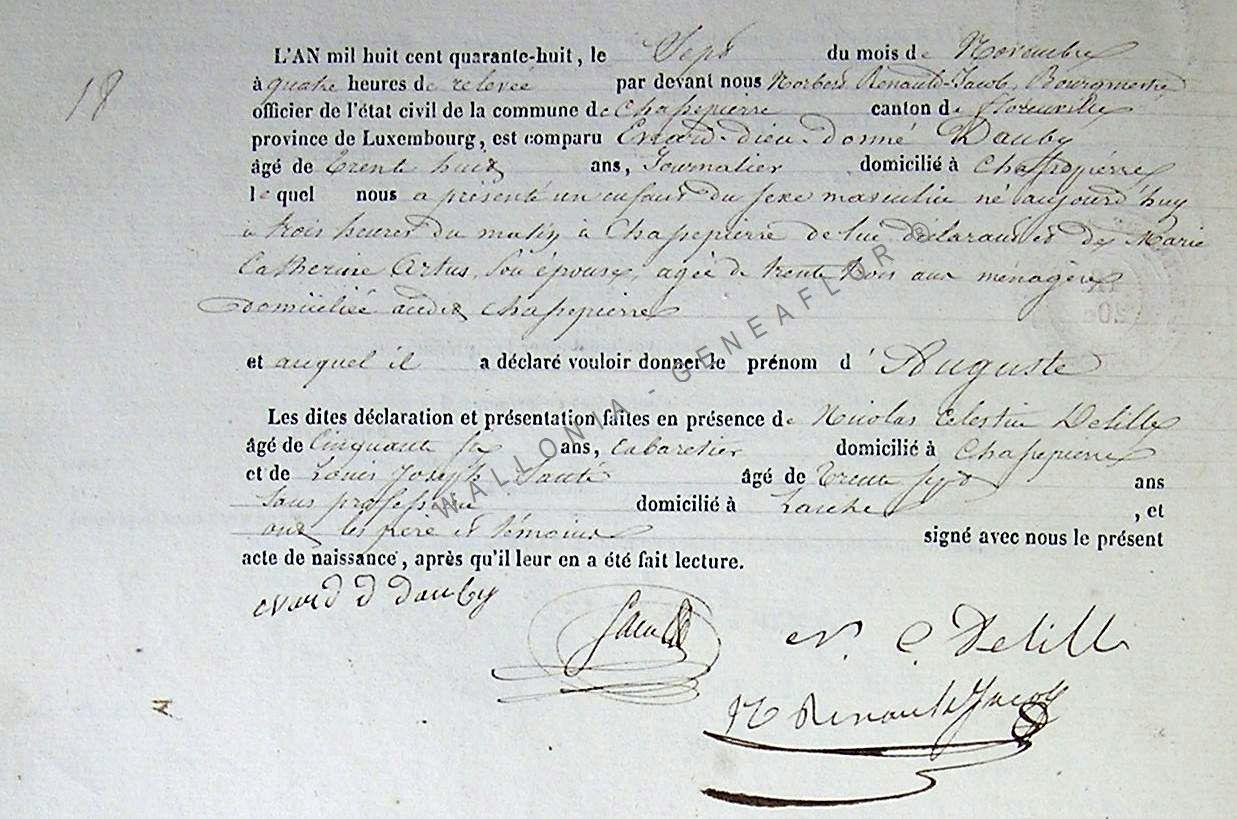 18
L'AN mil huit cent quarante-huit, le Sept du mois de Novembre
à quatre heures de relevée par devant nous Norbert Renauld-Jacob, Bourgmestre
officier de l'état civil de la commune de Chassepierre canton de Florenville
province de Luxembourg, est comparu Evrard-dieu-donné Dauby
âgé de trente huit ans, Journalier domicilié à Chassepierre
lequel nous a présenté un enfant du sexe masculin né aujourd'huy
à trois heures du matin à Chassepierre de lui déclarant et de Marie
Catherine Artus, son épouse, agée de trente trois ans ménagère
domiciliée audit Chassepierre
et auquel il a déclaré vouloir donner le prénom d' Auguste
Les dites déclaration et présentation faites en présence de Nicolas Celestin Delille
âgé de Cinquante six ans, Cabaretier domicilié à Chassepierre
et de Louis Joseph âgé de trente sept ans
sans profession domicilié à Laiche, et
ont les pere et témoins signé avec nous le présent
acte de naissance, après qu'il leur en a été fait lecture.
evrard d dauby
N. C. Delille
N Renauld Jacob
WALLONIA - GENEAFLOR ©